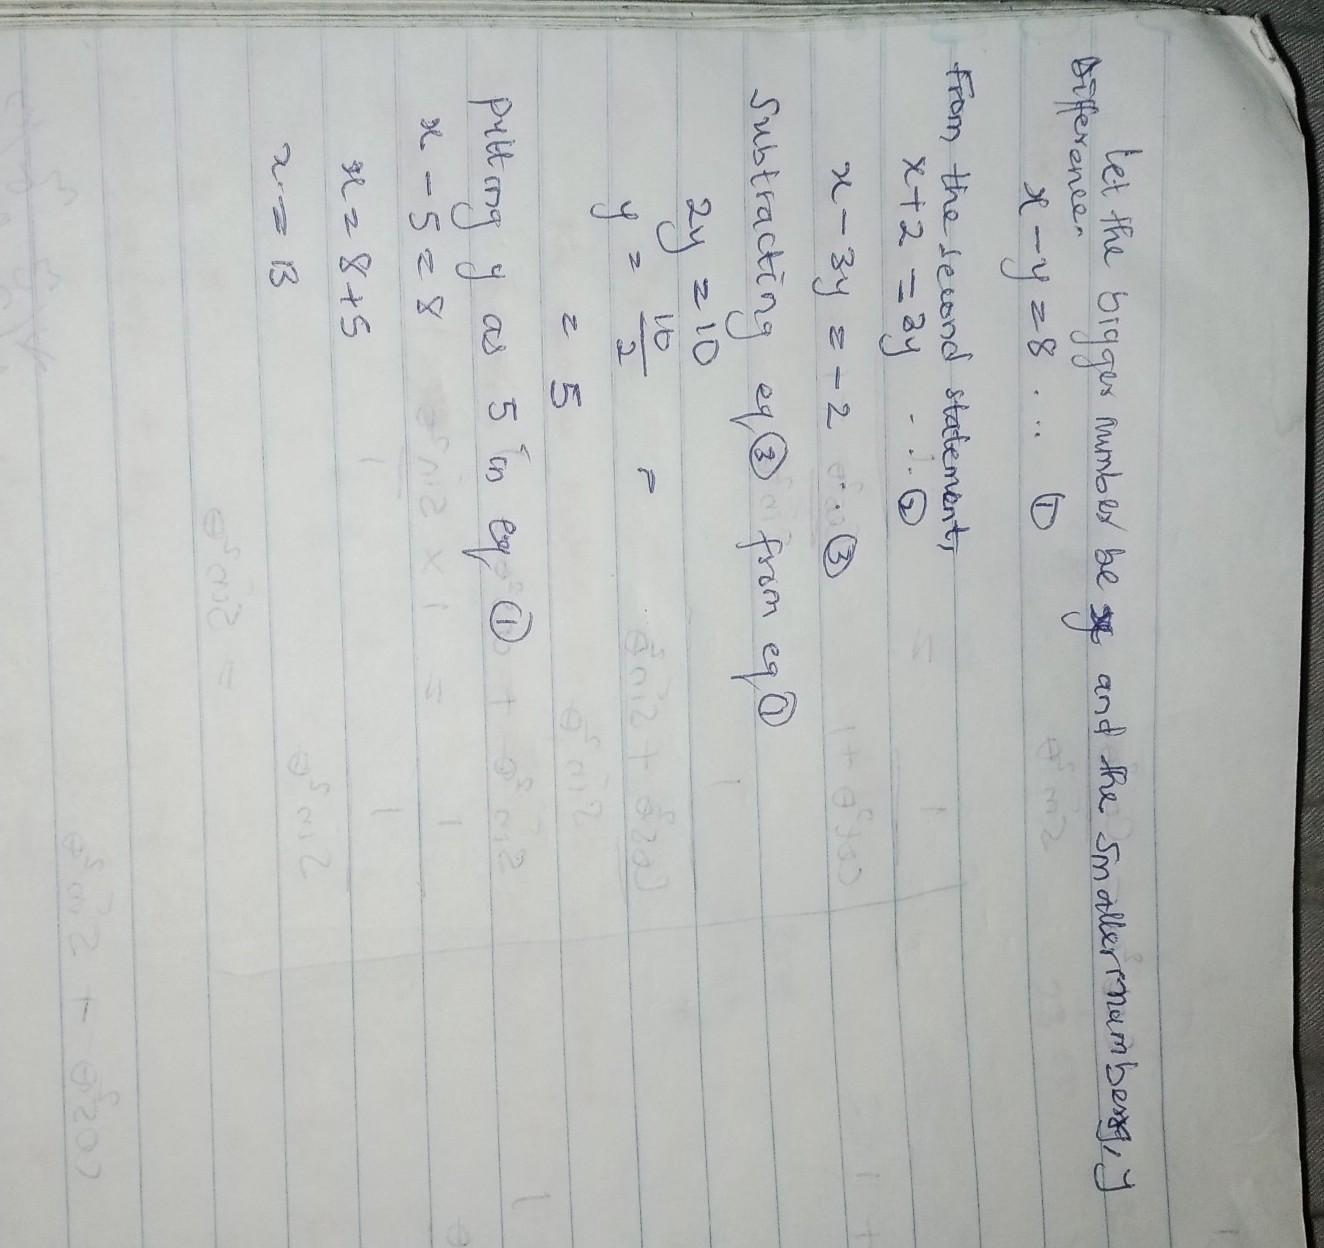 Let the bigger number be x and the smaller number, y
Difference
x - y = 8 ... ①
From the second statement,
x + 2 = 3y ... ②
x - 3y = -2 ... ③
Subtracting eq ③ from eq ①
2y = 10
y = 10/2 =
= 5
Putting y as 5 in eq ①
x - 5 = 8
x = 8 + 5
x = 13